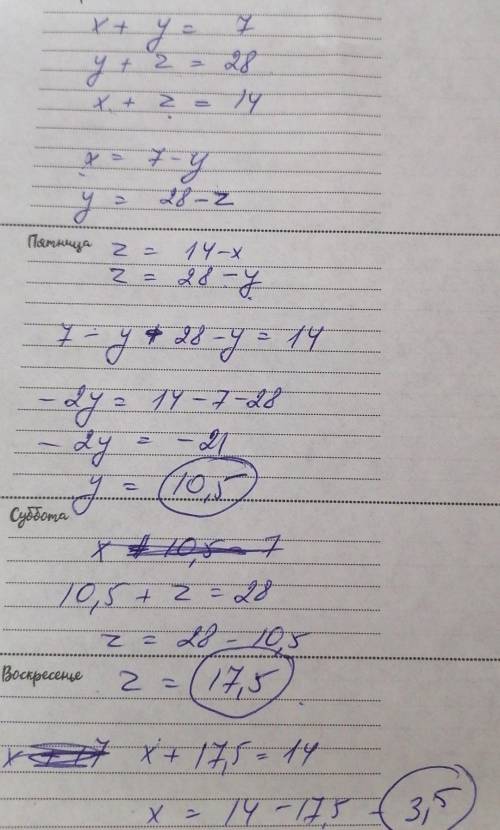 x + y = 7
y + z = 28
x + z = 14
x = 7 - y
y = 28 - z
Пятница
z = 14 - x
z = 28 - y
7 - y + 28 - y = 14
- 2y = 14 - 7 - 28
- 2y = - 21
y = 10,5
Суббота
x + 10,5 = 7
10,5 + z = 28
z = 28 - 10,5
Воскресенье
z = 17,5
x + 17 x + 17,5 = 14
x = 14 - 17,5 - 3,5